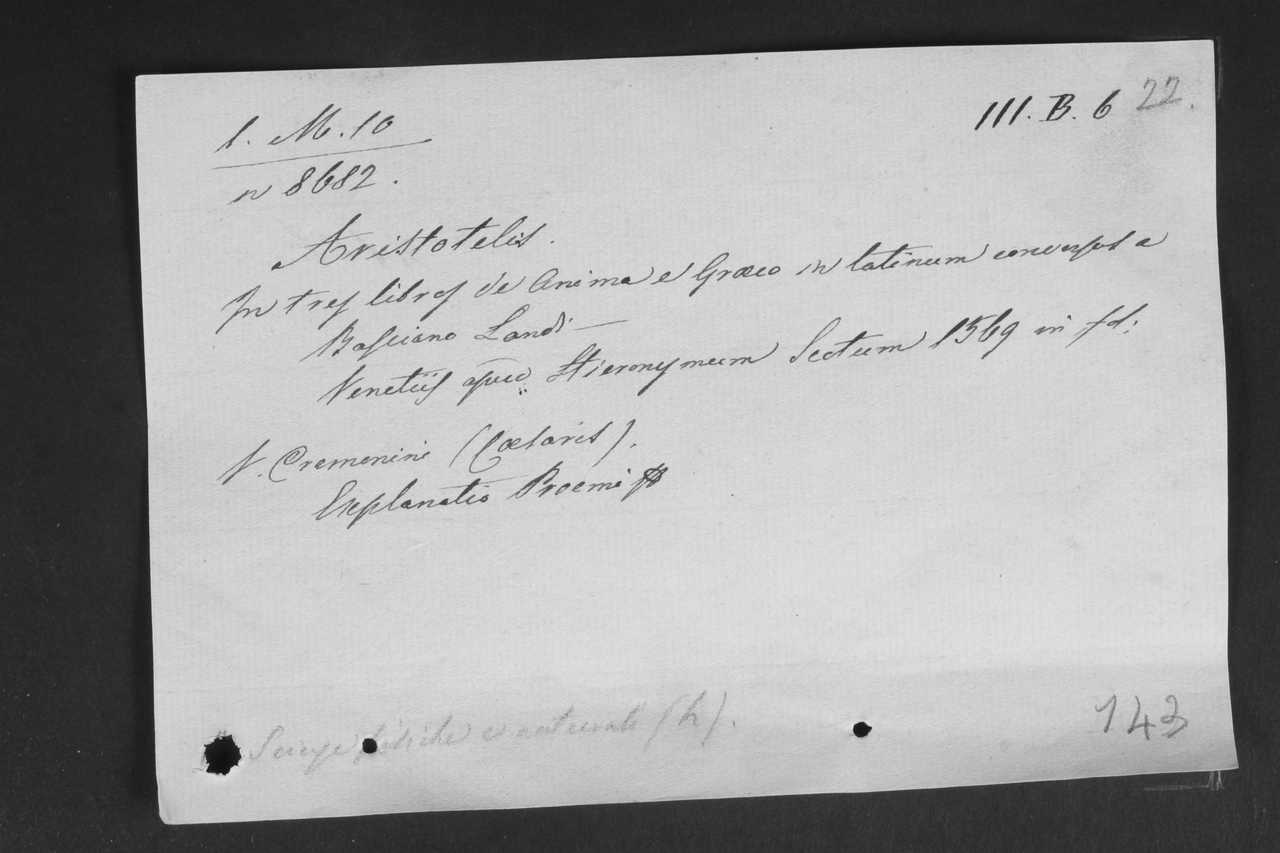 1. M. 10
III. B. 6 22.
n 8682.
Aristotelis.
In tres libros de Anima e Græco in latinum conversos a
Bassiano Landi —
Venetiis apud Hieronymum Scotum 1569 in fol:
V. Cremonini (Cæsaris).
Explanatio Proemi
fisiche e naturali (h).
143